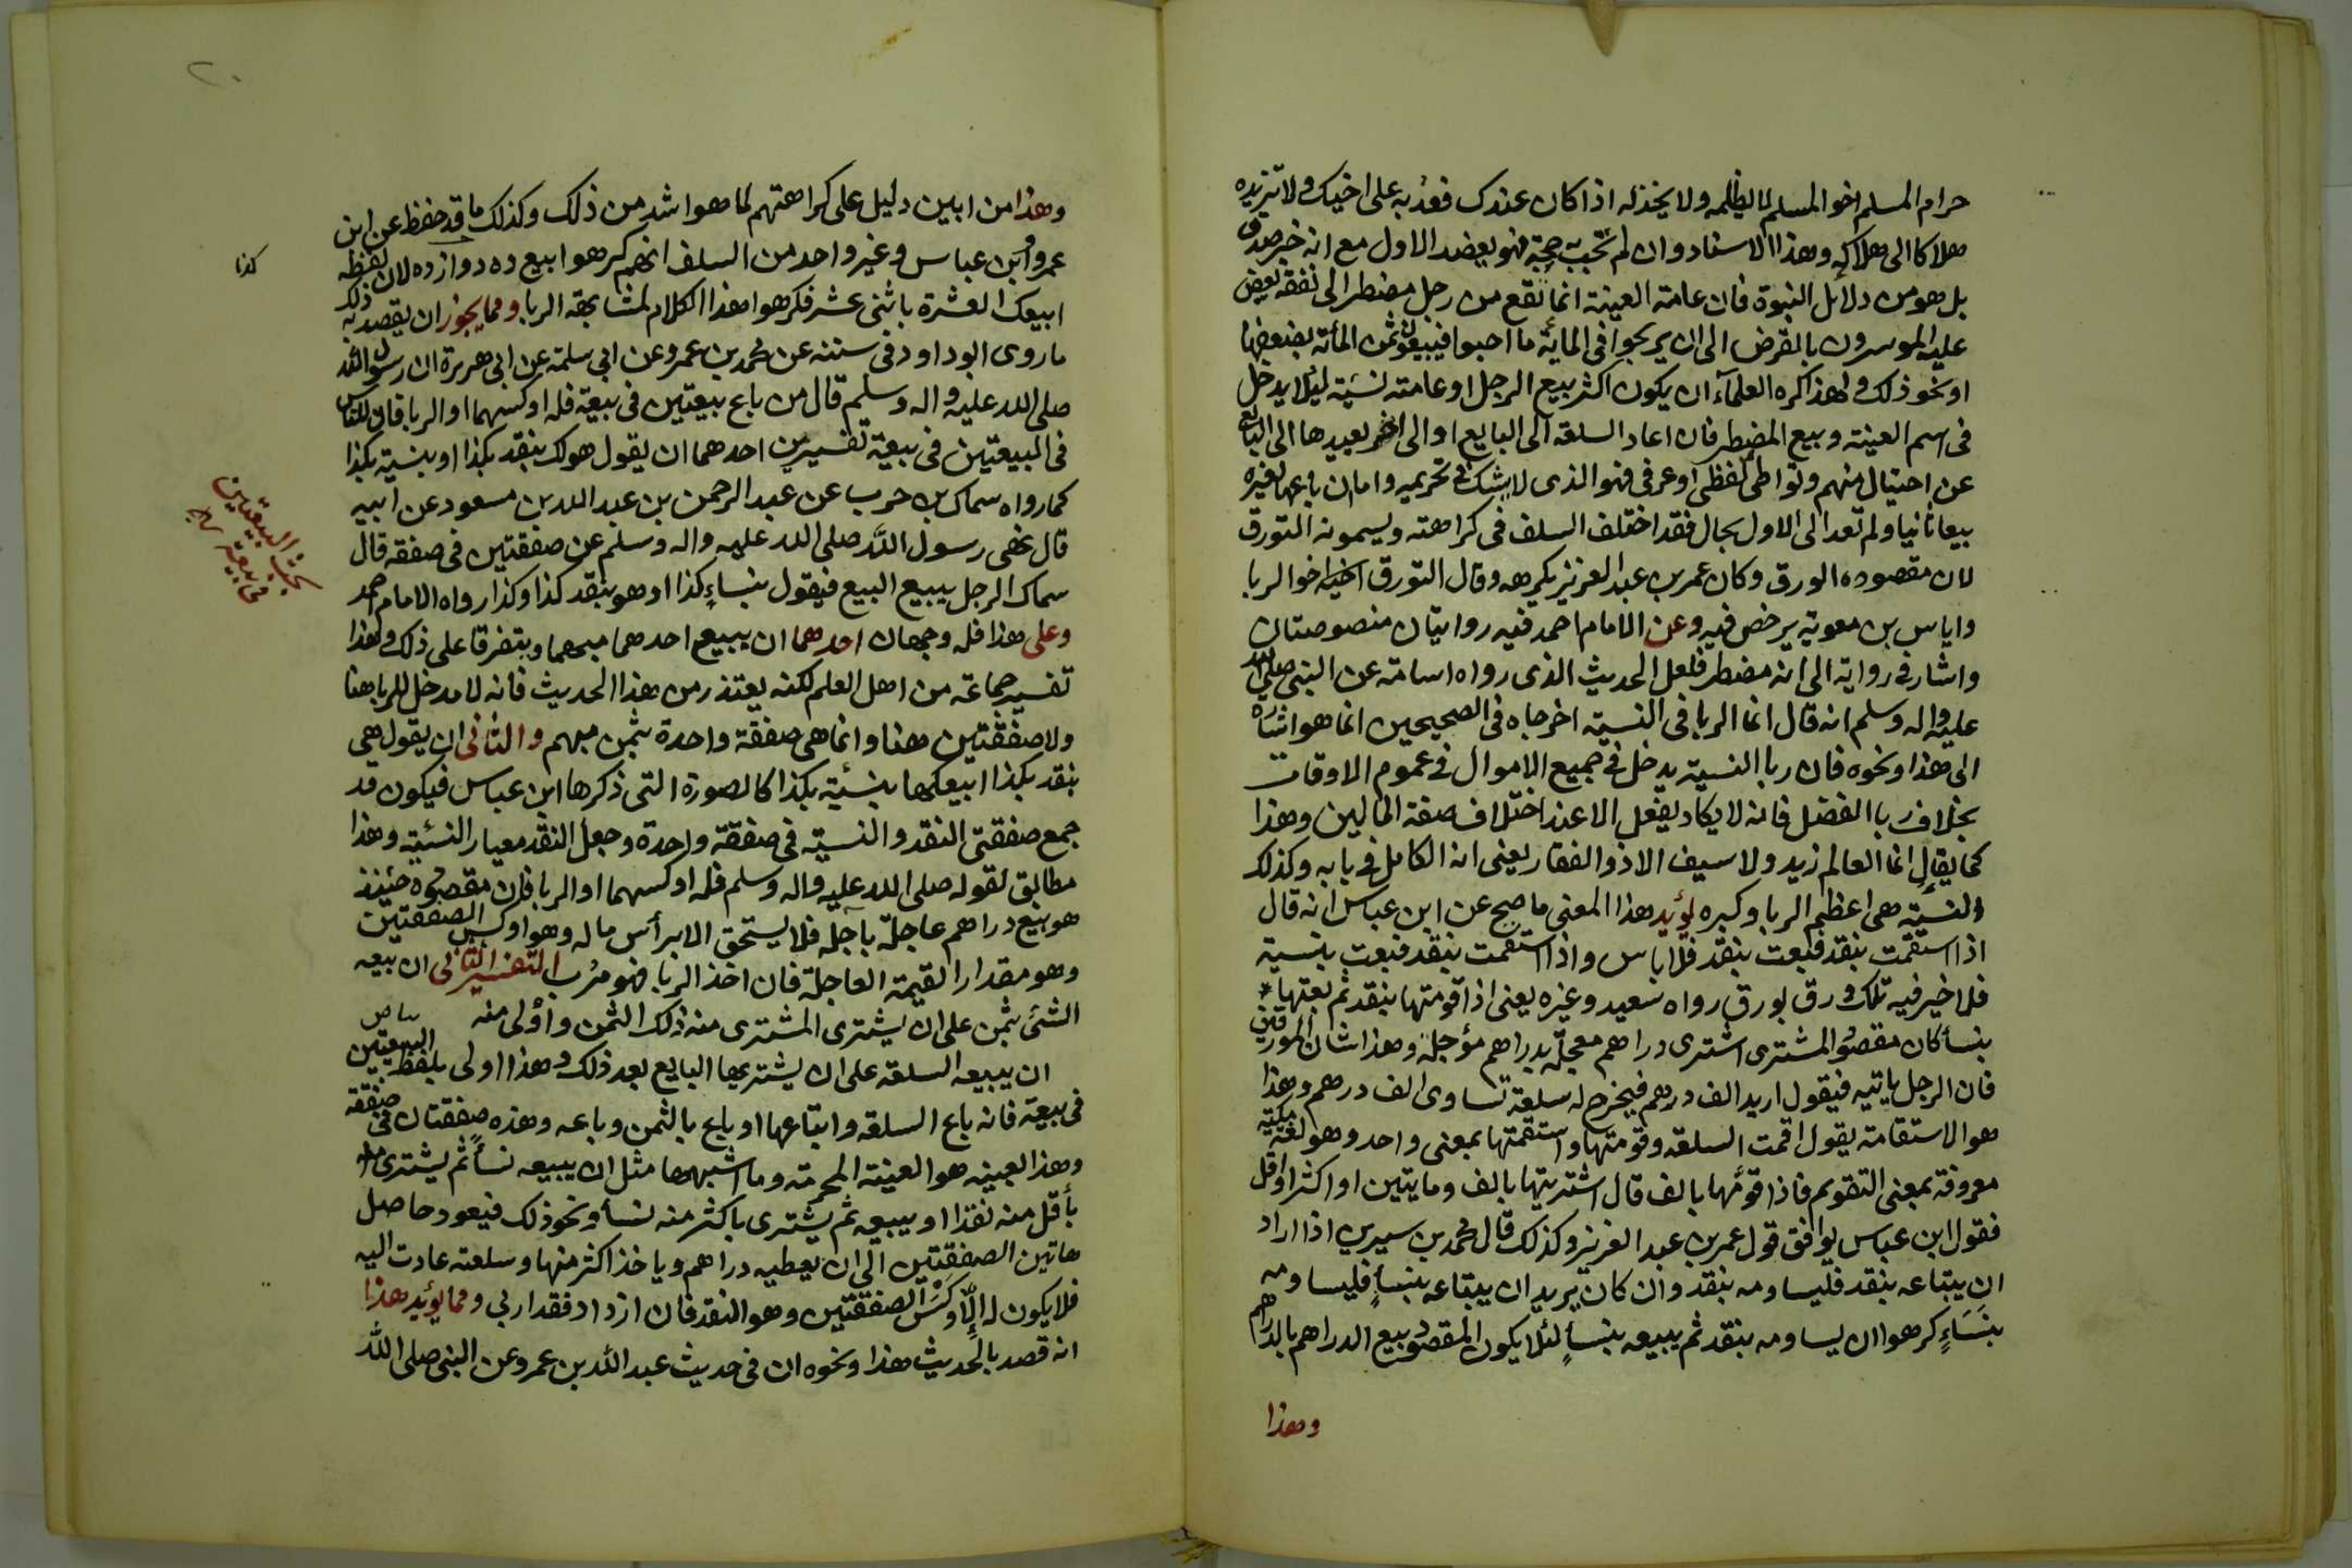 حرام المسلم اخو المسلم لا يظلمه ولا يخذله اذا كان عندك فعد به على اخيك ولا تزيده
هلاكا الى هلاكه وهذا الاسناد وان لم تجب به حجة فهو يعضد الاول مع انه خبر صدق
بل هو من دلائل النبوة فان عامة العينة انما تقع من رجل مضطر الى نفقة يعض
عليه الموسرون بالقرض الى ان يربحوا فى المائة ما احبوا فيبيعون ثمن المأته بضعفها
او نحو ذلك ولهذا كره العلمآء ان يكون اكثر بيع الرجل او عامته نسئة لئلا يدخل
فى اسم العينة وبيع المضطر فان اعاد السلعة الى البايع او الى اخر يعيدها الى البايع
عن احتيال منهم وتواطئ لفظى او عرفى فهو الذى لا يشك فى تحريمه واما ان باعها لغيره
بيعا ثانيا ولم تعد الى الاول بحال فقد اختلف السلف فى كراهته ويسمونه التورق
لان مقصوده الورق وكان عمر بن عبد العزيز يكرهه وقال التورق اخيه اخو الربا
واياس بن معوية يرخص فيه وعن الامام احمد فيه روايتان منصوصتان
واشار فى رواية الى انه مضطر فلعل الحديث الذى رواه اسامة عن النبى صلى الله
عليه واله وسلم انه قال انما الربا فى النسية اخرجاه فى الصحيحين انما هو اشارة
الى هذا ونحوه فان ربا النسية يدخل فى جميع الاموال فى عموم الاوقات
بخلاف ربا الفضل فانه لا يكاد يفعل الا عند اختلاف صفة المالين وهذا
كما يقال انما العالم زيد ولا سيف الا ذو الفقار يعنى انه الكامل فى بابه وكذلك
النسئة هى اعظم الربا وكبره يؤيد هذا المعنى ما صح عن ابن عباس انه قال
اذا استقمت بنقد فبعت بنقد فلا باس واذا استقمت بنقد فبعت بنسية
فلا خير فيه تلك ورق بورق رواه سعيد وغيره يعنى اذا قومتها بنقد ثم بعتها
بنسأ كان مقصود المشترى اشترى دراهم معجلة بدراهم مؤجلة وهذا شان المورقين
فان الرجل ياتيه فيقول اريد الف درهم فيخرج له سلعة تساوى الف درهم وهذا
هو الاستقامة يقول اقمت السلعة وقومتها واستقمتها بمعنى واحد وهو لغة مكية
معروفة بمعنى التقويم فاذا قومها بالف قال اشتريتها بالف ومايتين او اكثر او اقل
فقول ابن عباس يوافق قول عمر بن عبد العزيز وكذلك قال محمد بن سيرين اذا اراد
ان يبتاعه بنقد فليساومه بنقد وان كان يريد ان يبتاعه بنسأٍ فليساومه
بنَسَاءٍ كرهوا ان يساومه بنقد ثم يبيعه بنسأٍ لئلا يكون المقصود بيع الدراهم بالدراهم
وهذا
٢٠
وهذا من ابين دليل على كراهتهم لما هو اشد من ذلك وكذلك ما قد حفظ عن ابن
عمر وابن عباس وغير واحد من السلف انهم كرهوا بيع ده دوازده لان لفظه
كذا
ابيعك العشرة باثنى عشر فكرهوا هذا الكلام لمشابهة الربا ومما يجوز ان يقصد به ذلك
ما روى ابو داود فى سننه عن محمد بن عمرو عن ابى سلمة عن ابى هريرة ان رسول الله
صلى الله عليه واله وسلم قال من باع بيعتين فى بيعة فله اوكسهما او الربا فان للناس
فى البيعتين فى بيعة تفسيرين احدهما ان يقول هو لك بنقد بكذا او بنسية بكذا
كما رواه سماك بن حرب عن عبد الرحمن بن عبد الله بن مسعود عن ابيه
بحث البيعتين
فى بيعة
قال نهى رسول الله صلى الله عليه واله وسلم عن صفقتين فى صفقة قال
سماك الرجل يبيع البيع فيقول بنسَاءٍ كذا او هو بنقد كذا وكذا رواه الامام احمد
وعلى هذا فله وجهان احدهما ان يبيع احدهما مبهما ويتفرقا على ذلك وهذا
تفسير جماعة من اهل العلم لكنه يعتذر من هذا الحديث فانه لا مدخل للربا هنا
ولا صفقتين هنا وانما هى صفقة واحدة بثمن مبهم والثانى ان يقول هى
بنقد بكذا ابيعكها بنسئة بكذا كالصورة التى ذكرها ابن عباس فيكون قد
جمع صفقتى النقد والنسية فى صفقة واحدة وجعل النقد معيار النسئة وهذا
مطابق لقوله صلى الله عليه واله وسلم فله اوكسهما او الربا فان مقصوده حينئذ
هو بيع دراهم عاجلة بآجله فلا يستحق الا برأس ماله وهو اوكس الصفقتين
وهو مقدار القيمة العاجلة فان اخذ الربا فهو مرب التفسير الثانى ان بيعه
الشئ بثمن على ان يشترى المشترى منه ذلك الثمن وأولى منه
ان يبيعه السلعة على ان يشتريها البايع بعد ذلك وهذا اولى بلفظ البيعتين
فى بيعة فانه باع السلعة وابتاعها او باع بالثمن وباعه وهذه صفقتان فى صفقة
وهذا العينه هو العينة المحرمة وما اشبهها مثل ان يبيعه نسأ ثم يشترى منه
بأقل منه نقدا او يبيعه ثم يشترى باكثر منه نسأ ونحو ذلك فيعود حاصل
هاتين الصفقتين الى ان يعطيه دراهم وياخذ اكثر منها وسلعته عادت اليه
فلا يكون له إلّا اوكس الصفقتين وهو النقد فان ازداد فقد اربى ومما يؤيد هذا
انه قصد بالحديث هذا ونحوه ان فى حديث عبد الله بن عمرو عن النبى صلى الله